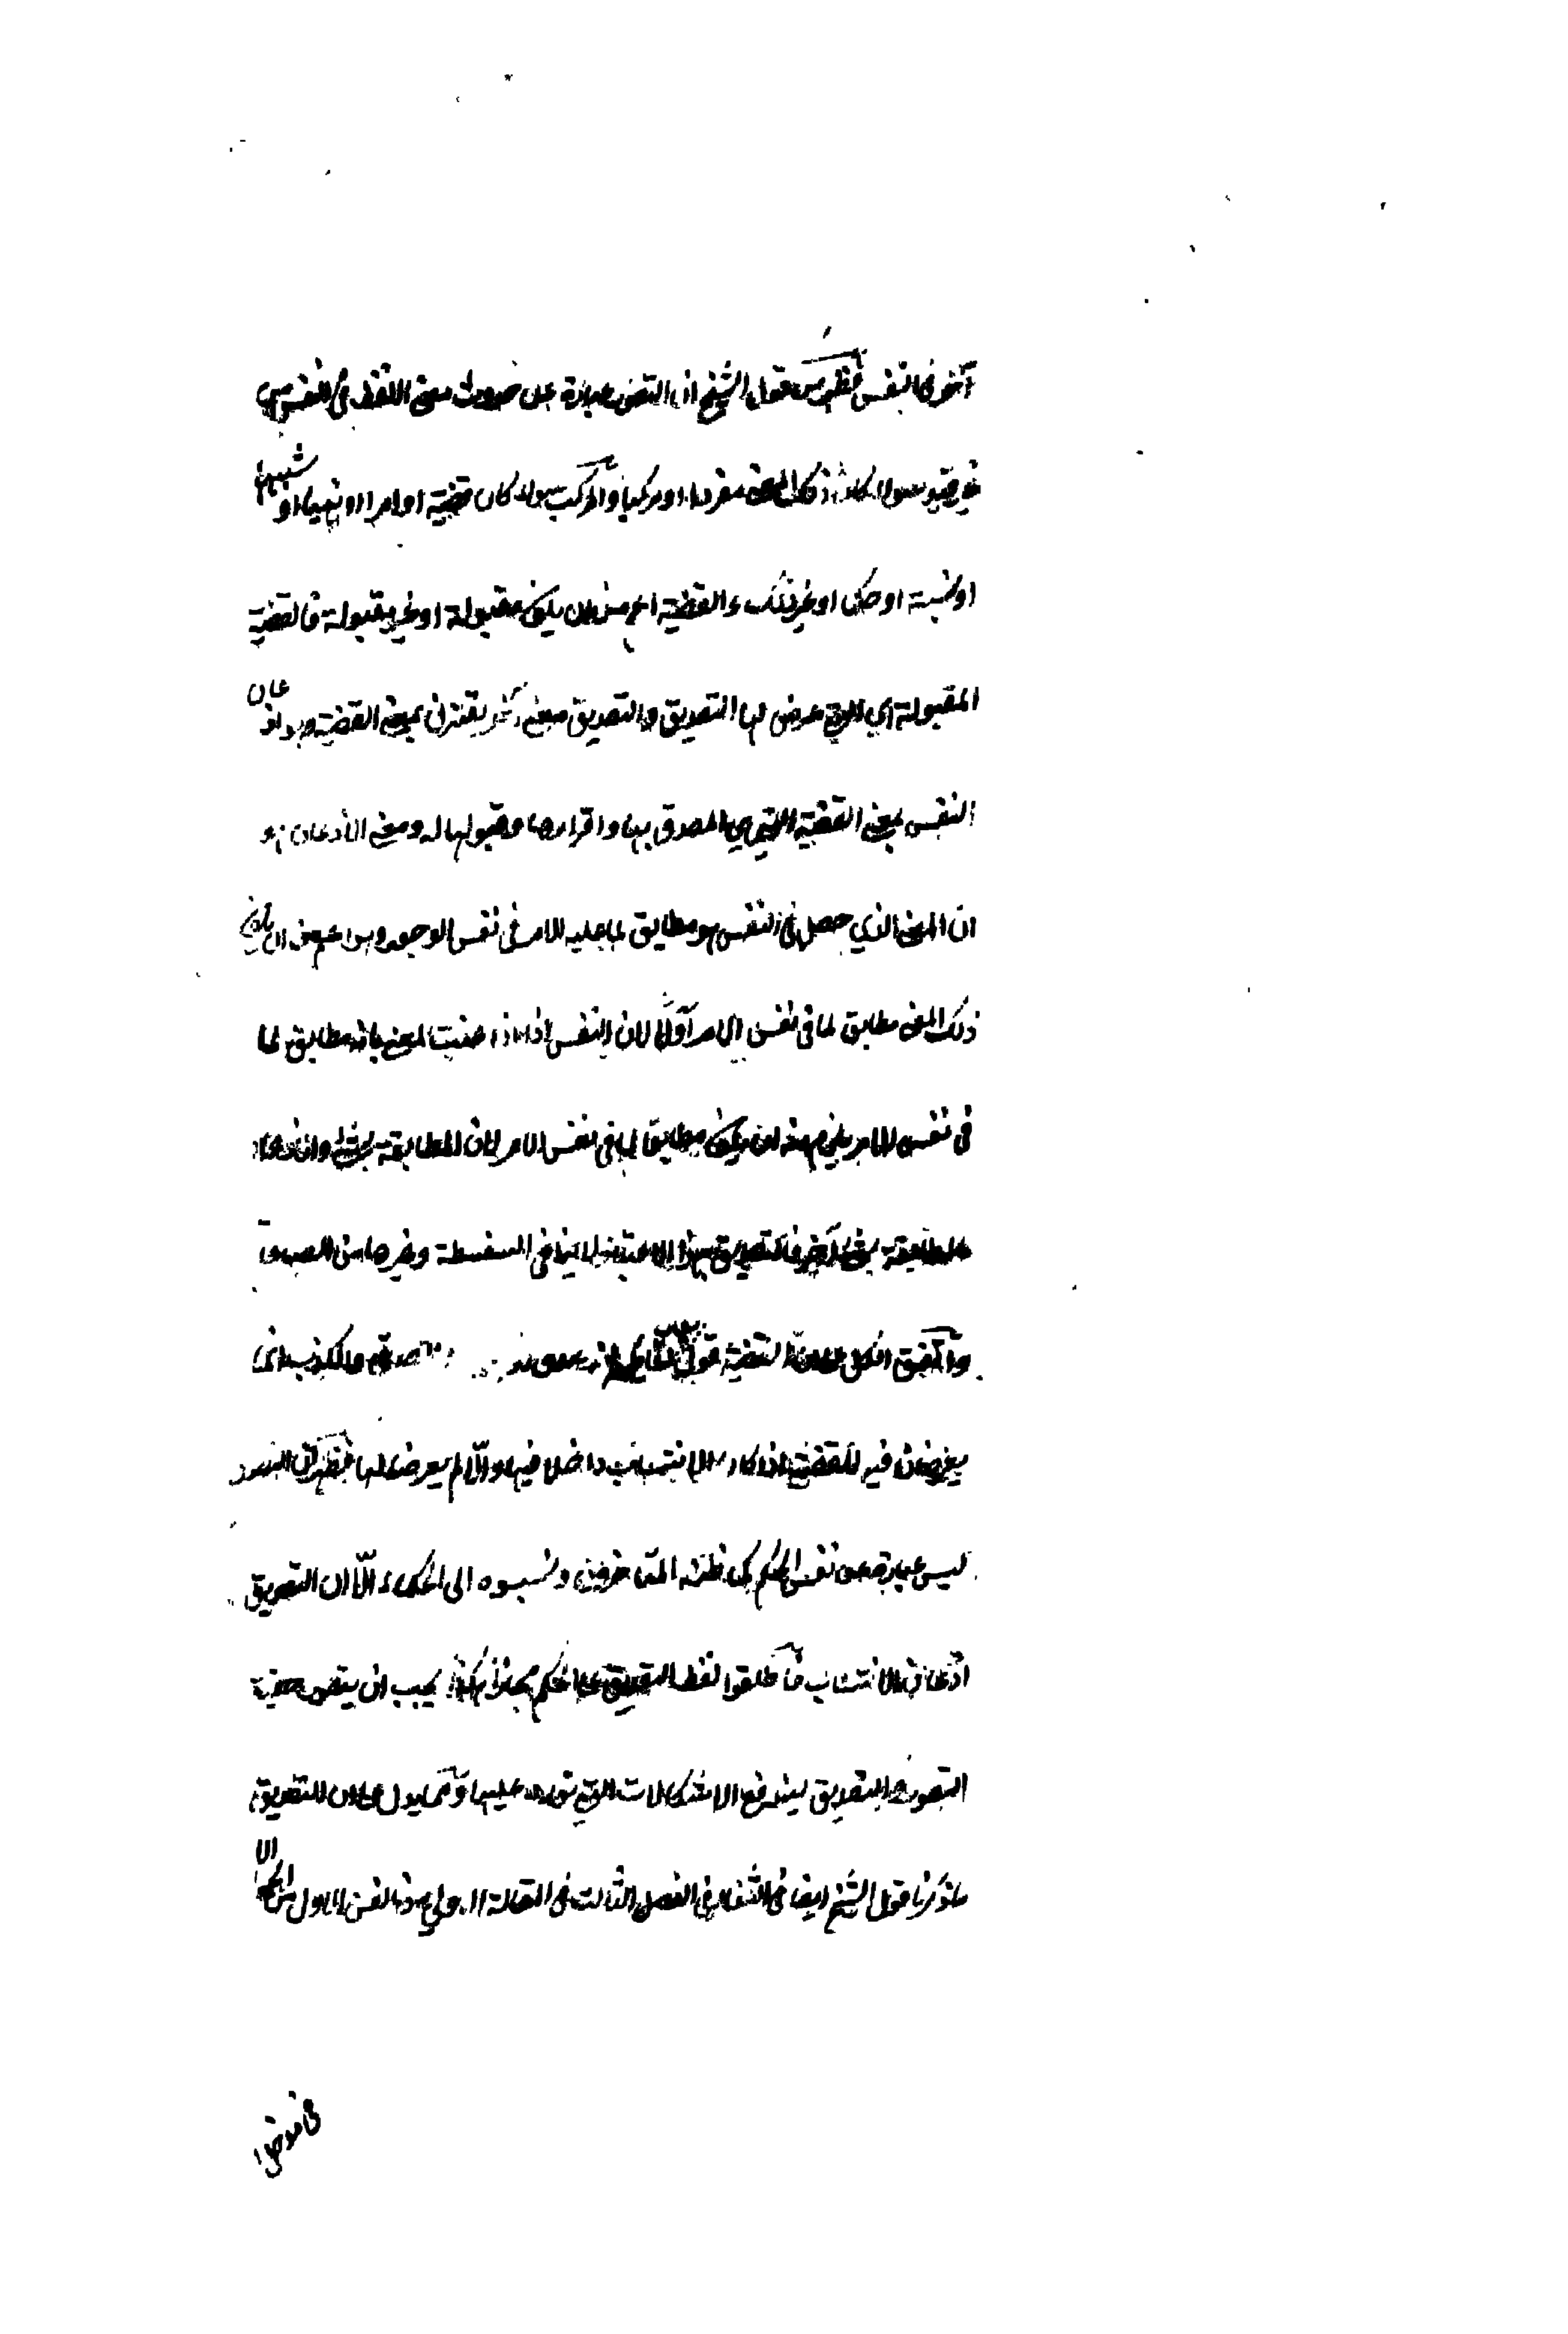 آخر فى النفس فظهر من قول الشيخ ان التصور عبارة عن حدوث معنى اللفظ فى النفس من
غير قيد سواء كان ذلك المعنى مفردا او مركبا والمركب سواء كان قضية او امرا او نهيا او شبيها
او نسبة او حكما او غير ذلك والقضية اعم من ان يكون مقبولة او غير مقبولة فالقضية
المقبولة اي التي عرض لها التصديق والتصديق معنى آخر يقترن بمعنى القضية وهو اذعان
النفس بمعنى القضية التي هي المصدق بها واقرارها وقبولها له ومعنى الاذعان هو
ان المعنى الذي حصل فى النفس هو مطابق لما عليه الامر فى نفس الوجود وهو اعم من ان يكون
ذلك المعنى مطابق لما فى نفس الامر أولا لان النفس اذا اذعنت لمعنى بانه مطابق لما
فى نفس الامر يلزم منه ان يكون مطابقا لما فى نفس الامر لان المطابقة شئ واذعان
المطابقة شئ آخر فالتصديق بهذا الاعتبار لا ينافى السفسطة وغيرها من
واتفق الكل على ان القضية قول يصدق والكذب انما
يعرضان فيه للقضية اذا كان الانتساب داخلا فيها والّا لم يعرضا لها فظهر ان التصديق
ليس عبارة عن نفس الحكم كما ظنه المتأخرين ونسبوه الى الحكماء الّا ان التصديق
اذعان الانتساب فأطلقوا لفظ التصديق على الحكم مجازا هكذا يجب ان يتصور حقيقة
التصور والتصديق ليندفع الاشكالات التي تورد عليها ومما يدل على ان التصديق
ما ذكرنا قول الشيخ ايضا فى الشفاء فى الفصل الثالث فى المقالة الاولى من الفن الاول من